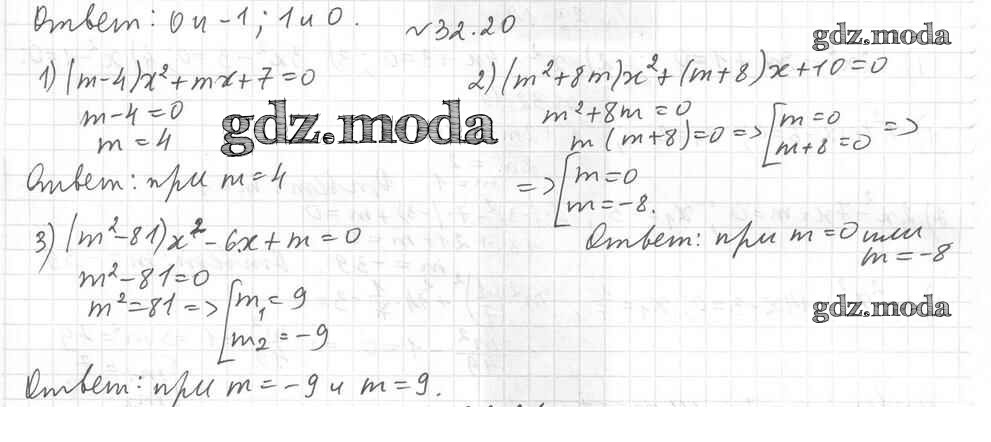 Ответ: 0 и -1; 1 и 0.
№32.20
gdz.moda
1) (m-4)x²+mx+7=0
m-4=0
m=4
gdz.moda
Ответ: при m=4
2) (m²+8m)x²+(m+8)x+10=0
m²+8m=0
m(m+8)=0 => [m=0 =>
m+8=0
=> [m=0
m=-8.
Ответ: при m=0 или
m=-8
3) (m²-81)x²-6x+m=0
m²-81=0
m²=81 => [m₁=9
m₂=-9
gdz.moda
Ответ: при m=-9 и m=9.